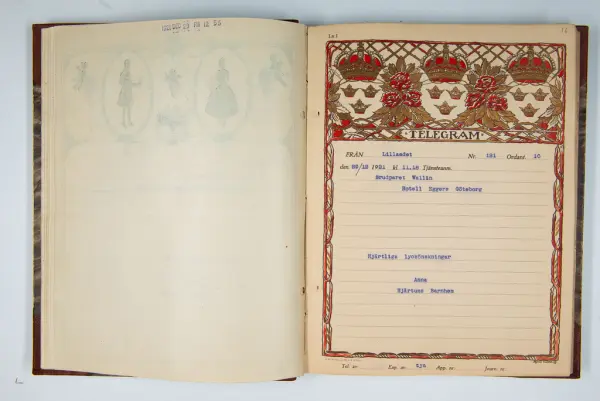 Lx 1
TELEGRAM
FRÅN Lillaedet Nr. 121 Ordant. 10
den 28/12 1921 kl 11.18 Tjänsteanm.
Brudparet Wallin
Hotell Eggers Göteborg
Hjärtliga lyckönskningar
Anna
Hjärtums Barnhem
Tel. nr Exp. av App. nr Journ. nr